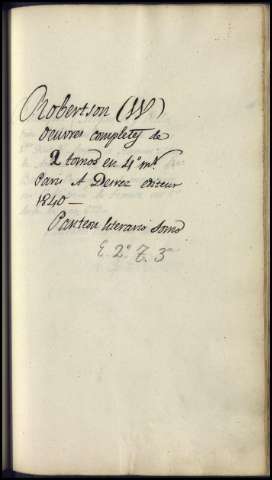 Robertson (W)
Oeuvres completes de
2 tomos en 4º mr
Paris A Desrez editeur
1840—
Panteon literario
E. 2º T. 3º